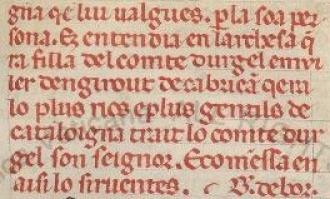 gña qe lui ualgues. ꝑla soa per
sona. Ez entendia en larchesa q̃
ra filla del comte durgel emvi
ller den giraut de cabrica qera
lo plus rics e plus gentils de
cataloigna trait lo comte dur
gel son seignor. E comessa en
aisi lo siruentes. B. de bor.